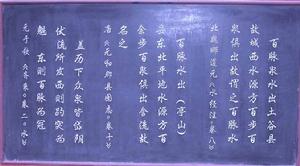 百脉泉水出土谷县
故城西水源方百步百
泉俱出故谓之百脉水
北魏郦道元《水经注·卷八》
百脉水出（亭山）
县东北平地水源方百
余步百泉俱出合流故
名之
唐《元和郡县图志·卷十》
盖历下众泉皆岱阴
伏流所发西则趵突为
魁 东则百脉为冠
元于钦《齐乘·卷二·水》